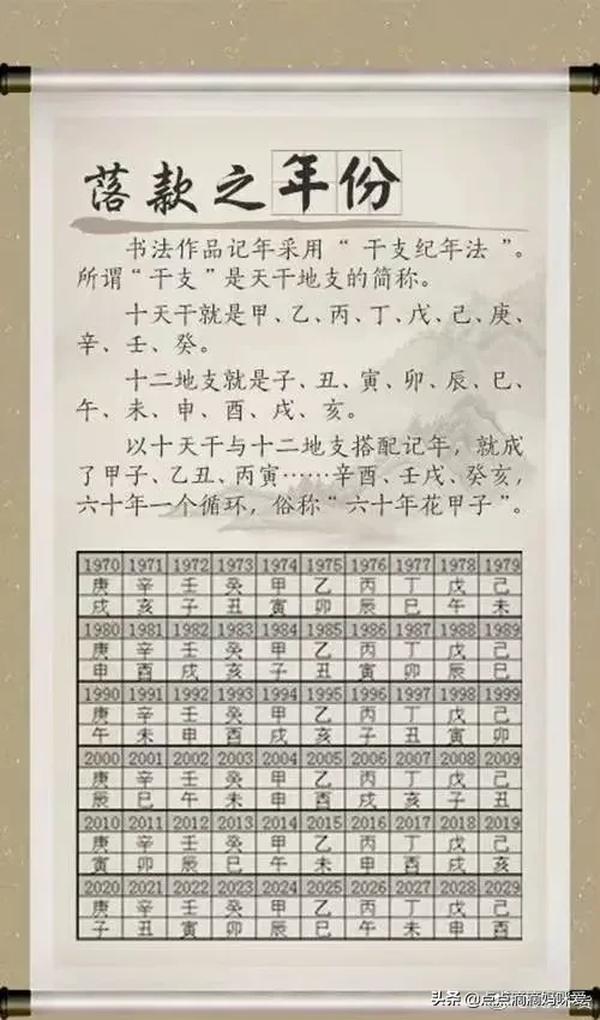 落款之年份
书法作品记年采用“干支纪年法”。
所谓“干支”是天干地支的简称。
十天干就是甲、乙、丙、丁、戊、己、庚、
辛、壬、癸。
十二地支就是子、丑、寅、卯、辰、巳、
午、未、申、酉、戌、亥。
以十天干与十二地支搭配记年，就成
了甲子、乙丑、丙寅……辛酉、壬戌、癸亥，
六十年一个循环，俗称“六十年花甲子”。
1970 1971 1972 1973 1974 1975 1976 1977 1978 1979
庚 辛 壬 癸 甲 乙 丙 丁 戊 己
戌 亥 子 丑 寅 卯 辰 巳 午 未
1980 1981 1982 1983 1984 1985 1986 1987 1988 1989
庚 辛 壬 癸 甲 乙 丙 丁 戊 己
申 酉 戌 亥 子 丑 寅 卯 辰 巳
1990 1991 1992 1993 1994 1995 1996 1997 1998 1999
庚 辛 壬 癸 甲 乙 丙 丁 戊 己
午 未 申 酉 戌 亥 子 丑 寅 卯
2000 2001 2002 2003 2004 2005 2006 2007 2008 2009
庚 辛 壬 癸 甲 乙 丙 丁 戊 己
辰 巳 午 未 申 酉 戌 亥 子 丑
2010 2011 2012 2013 2014 2015 2016 2017 2018 2019
庚 辛 壬 癸 甲 乙 丙 丁 戊 己
寅 卯 辰 巳 午 未 申 酉 戌 亥
2020 2021 2022 2023 2024 2025 2026 2027 2028 2029
庚 辛 壬 癸 甲 乙 丙 丁 戊 己
子 丑 寅 卯 辰 巳 午 未 申 酉
头条 @点点滴滴妈咪爱